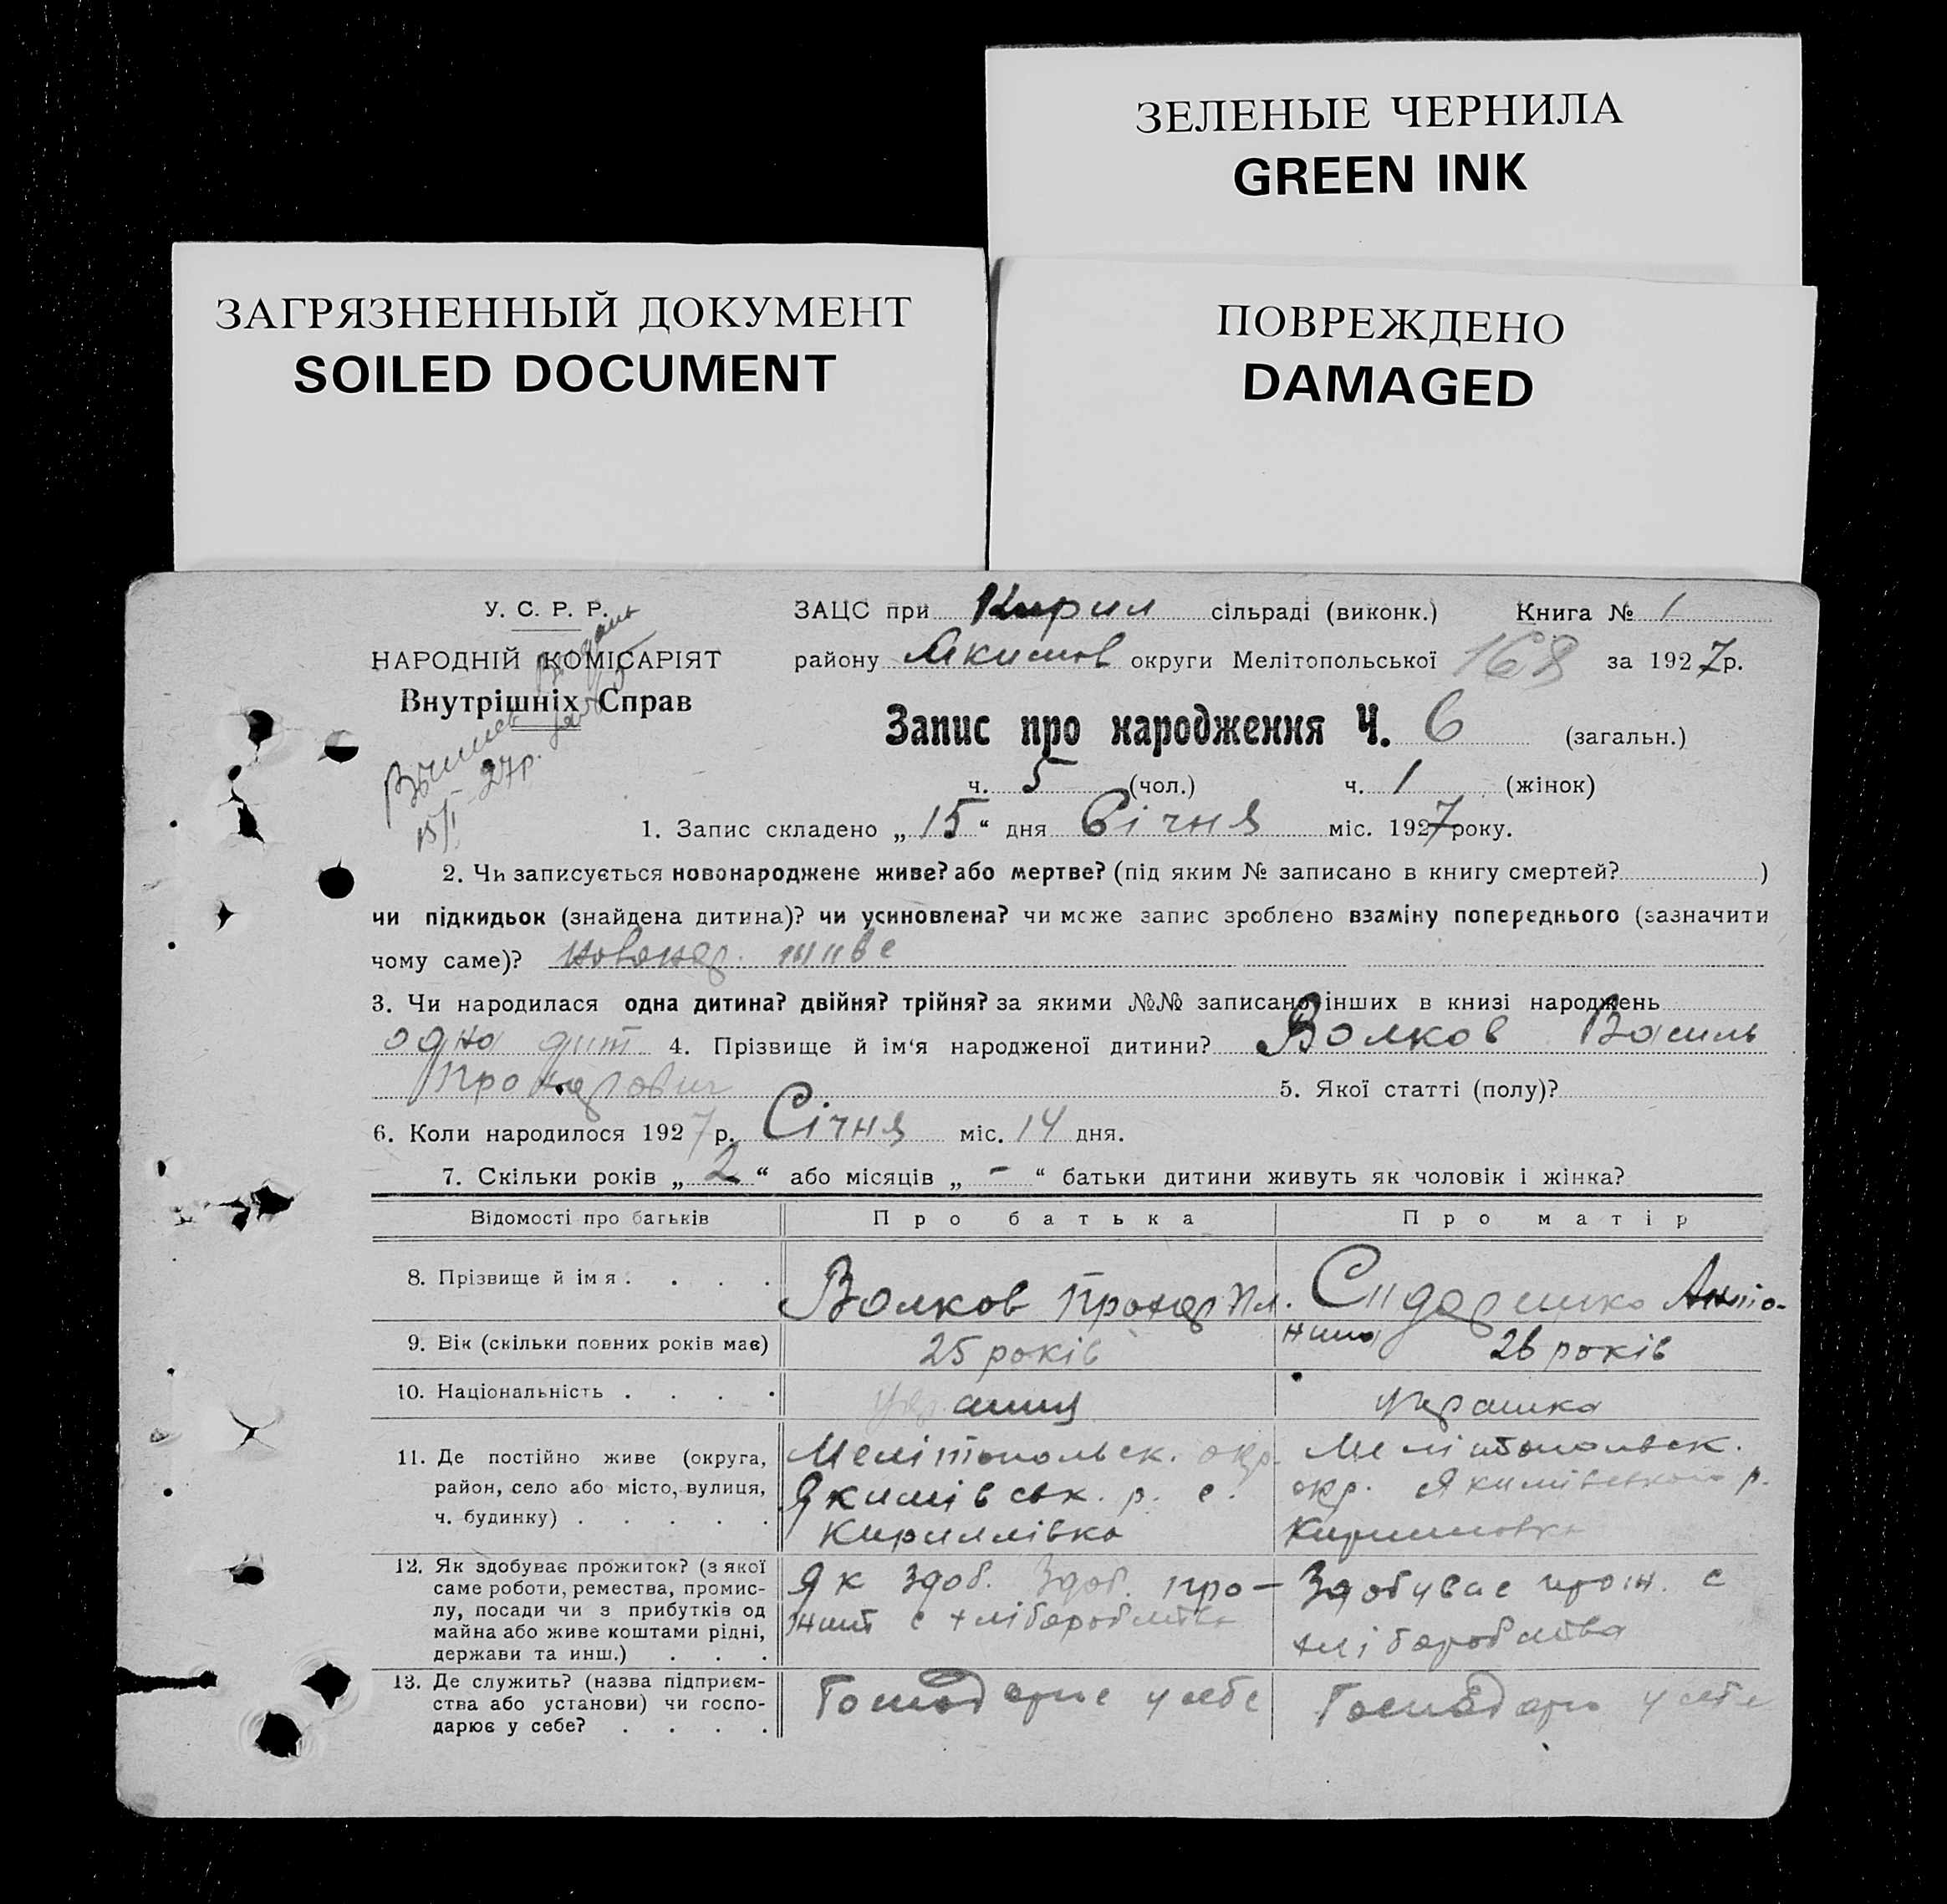 ЗЕЛЕНЫЕ ЧЕРНИЛА
GREEN INK
ЗАГРЯЗНЕННЫЙ ДОКУМЕНТ
SOILED DOCUMENT
ПОВРЕЖДЕНО
DAMAGED
У. С. Р. Р.
НАРОДНІЙ КОМІСАРІЯТ
Внутрішніх Справ
15/I 27р.
ЗАЦС при Кирил сільраді (виконк.) Книга № 1
району Якимов округи Мелітопольської 168 за 1927р.
Запис про народження Ч. 6 (загальн.)
ч. 5 (чол.) ч. 1 (жінок)
1. Запис складено „ 15 “ дня Січня міс. 1927 року.
2. Чи записується новонароджене живе? або мертве? (під яким № записано в книгу смертей? )
чи підкидьок (знайдена дитина)? чи усиновлена? чи може запис зроблено взаміну попереднього (зазначити
чому саме)? новонар. живе
3. Чи народилася одна дитина? двійня? трійня? за якими №№ записано інших в книзі народжень
одна дит 4. Прізвище й ім‘я народженої дитини? Волков Василь
Прохарович 5. Якої статті (полу)?
6. Коли народилося 1927 р. Січня міс. 14 дня.
7. Скільки років „ 2 “ або місяців „ - “ батьки дитини живуть як чоловік і жінка?
Відомості про батьків Про батька Про матір
8. Прізвище й імя . . . . Волков Прохар Пл. Сидаренко Анто-
нина
9. Вік (скільки повних років має) 25 років 26 років
10. Національність . . . . украинц украинка
11. Де постійно живе (округа, Мелітопольск. окр. Мелітопольск.
район, село або місто, вулиця, Якимівськ. р. с. окр. Якимівського р.
ч. будинку) . . . . . Кириллівка Кириловка
12. Як здобуває прожиток? (з якої Як здоб. Здоб. про- Здобуває прож. с
саме роботи, ремества, промис-
лу, посади чи з прибутків од жит с хліборобства хліборобства
майна або живе коштами рідні,
держави та инш.) . . .
13. Де служить? (назва підприєм- Господарює у себе Господарю у себе
ства або установи) чи госпо-
дарює у себе? . . . .